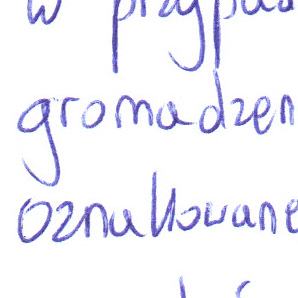 w przypad
gromadzen
oznakowane